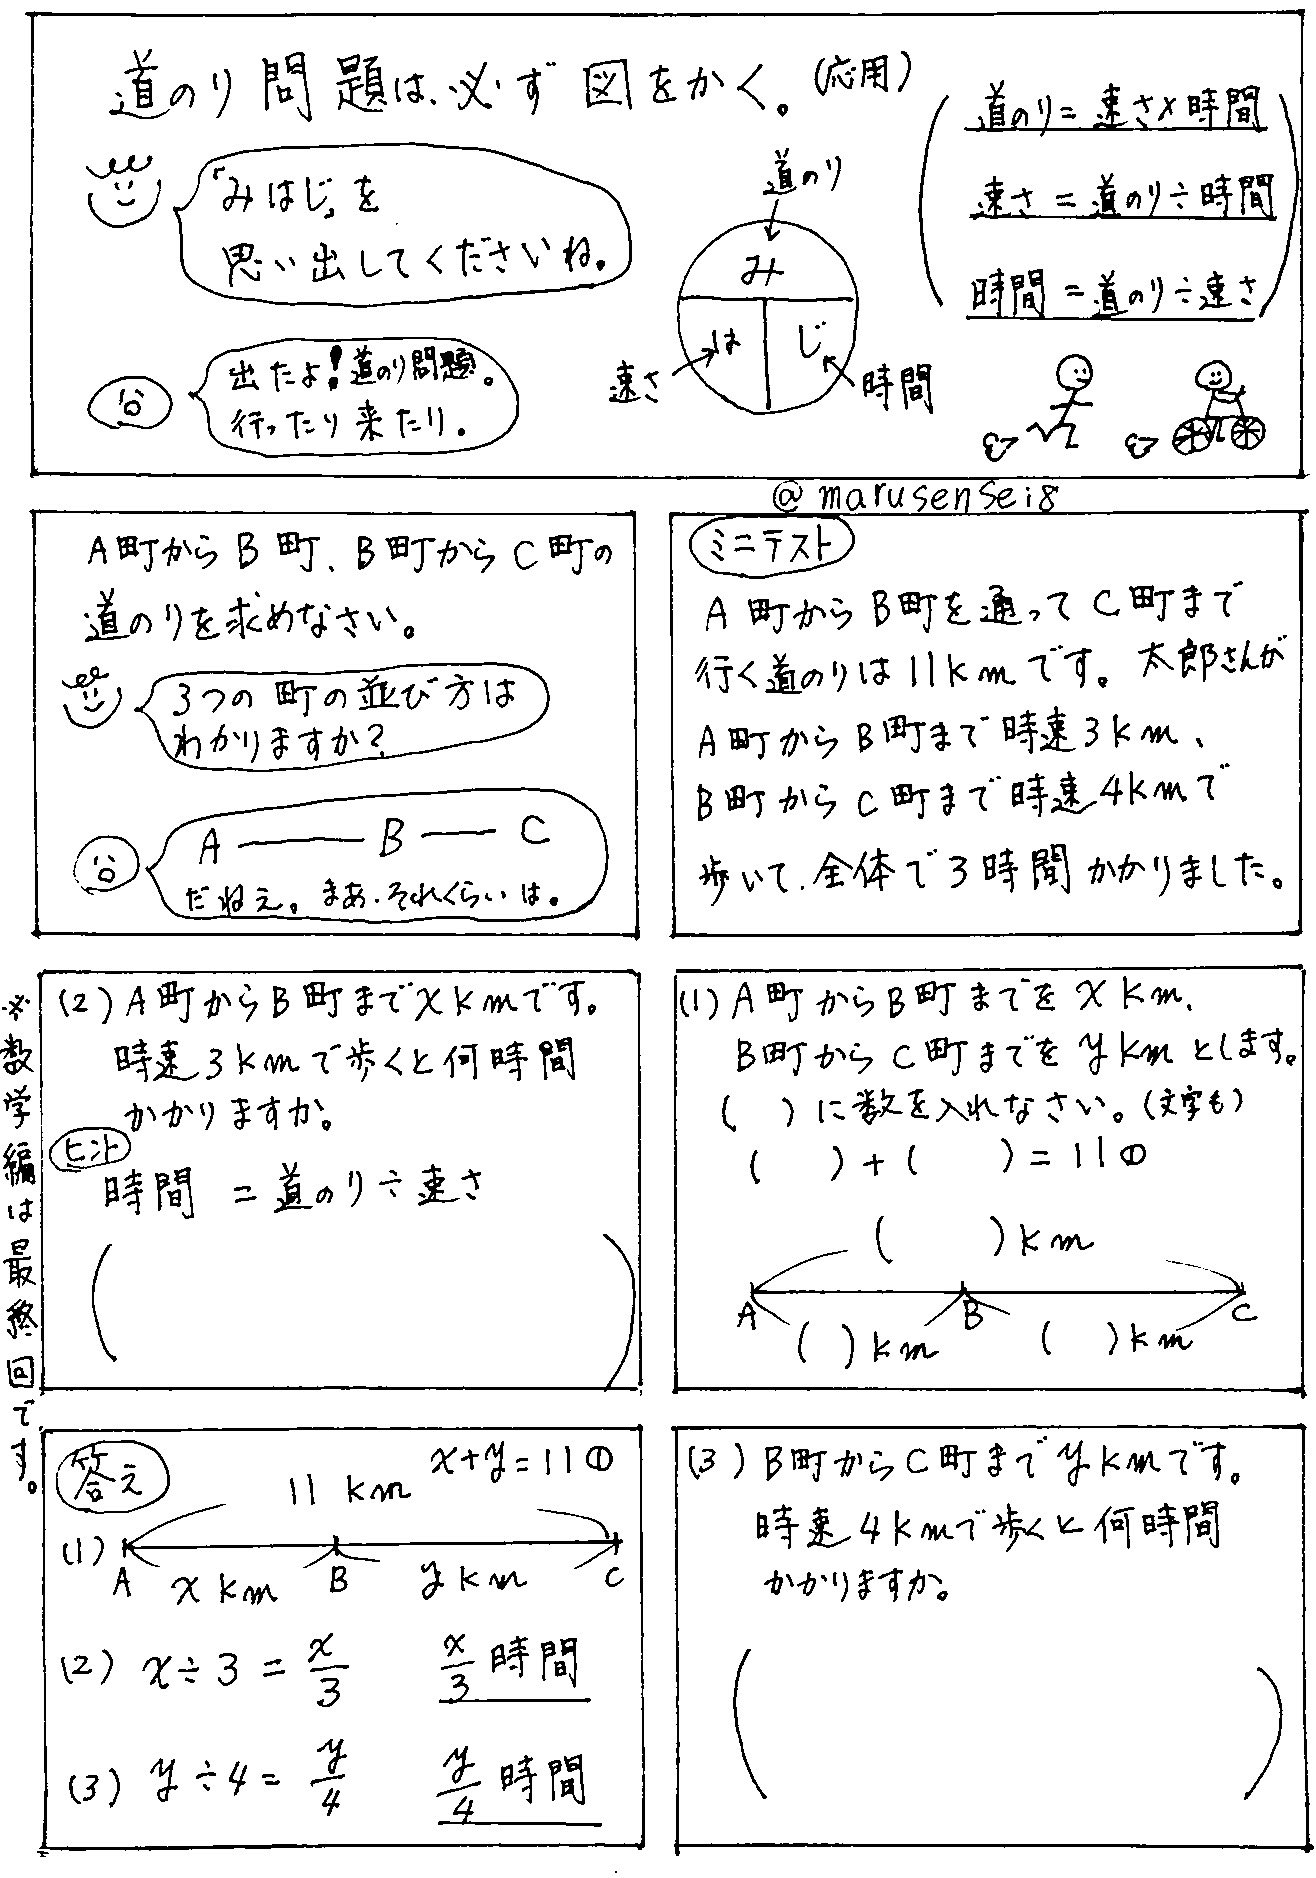 道のり問題は、必ず図をかく。(応用)
「みはじ」を
思い出してくださいね。
出たよ!道のり問題。
行ったり来たり。
道のり
み
は
じ
速さ
時間
道のり=速さ×時間
速さ=道のり÷時間
時間=道のり÷速さ
@marusensei8
A町からB町、B町からC町の
道のりを求めなさい。
3つの町の並び方は
わかりますか?
A — B — C
だねえ。まあ、それくらいは。
ミニテスト
A町からB町を通ってC町まで
行く道のりは11kmです。太郎さんが
A町からB町まで時速3km、
B町からC町まで時速4kmで
歩いて、全体で3時間かかりました。
(1) A町からB町までをxkm、
B町からC町までをykmとします。
( )に数を入れなさい。(文字も)
( )+( )=11①
( )km
A B C
( )km ( )km
(2) A町からB町までxkmです。
時速3kmで歩くと何時間
かかりますか。
ヒント
時間=道のり÷速さ
( )
※数学編は最終回です。
(3) B町からC町までykmです。
時速4kmで歩くと何時間
かかりますか。
( )
答え
x+y=11①
11km
(1)
A xkm B ykm C
(2) x÷3=x/3 x/3時間
(3) y÷4=y/4 y/4時間